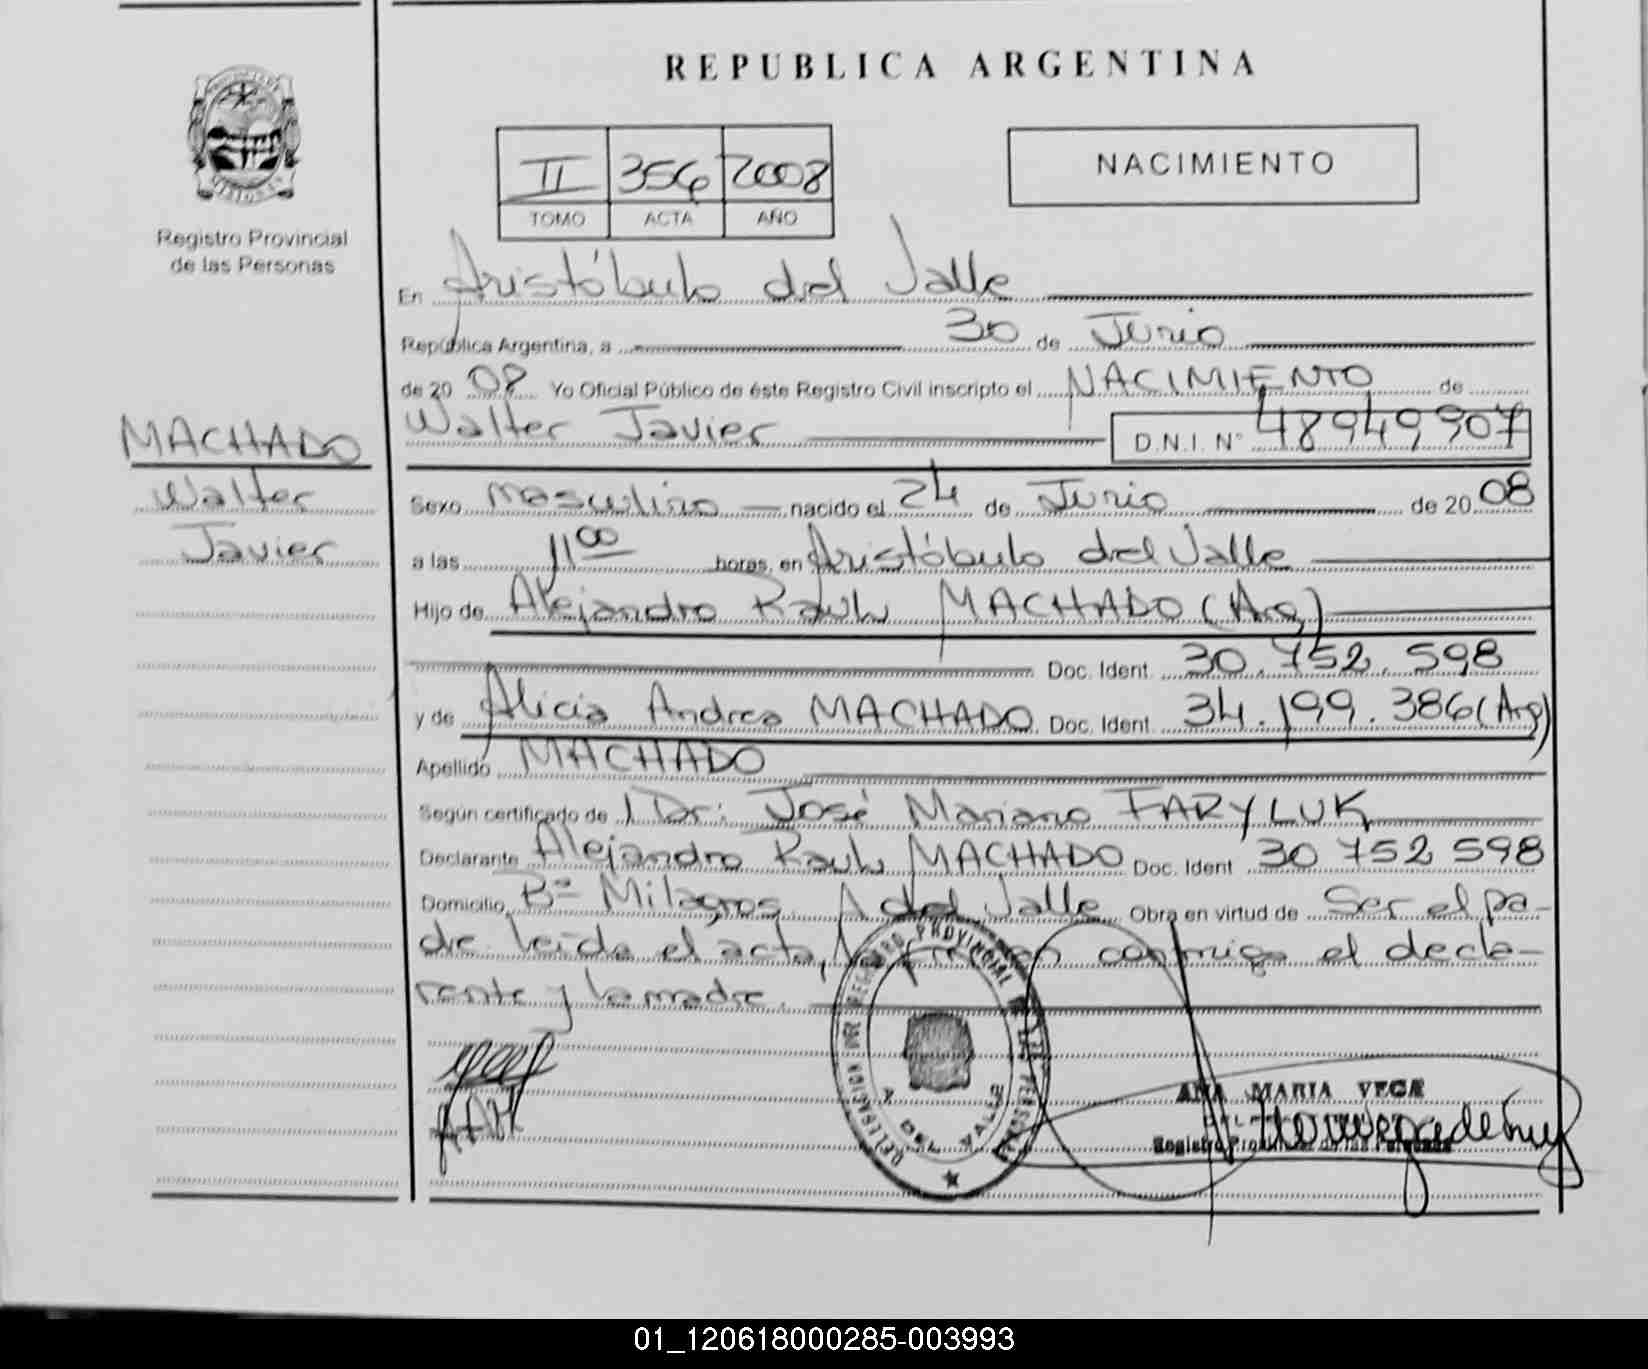 REPUBLICA ARGENTINA
II 356 2008
TOMO ACTA AÑO
NACIMIENTO
Registro Provincial
de las Personas
En Aristóbulo del Valle
República Argentina, a 30 de Junio
de 20 08 Yo Oficial Público de éste Registro Civil inscripto el NACIMIENTO de
Walter Javier D.N.I. Nº 48949907
MACHADO
Walter
Javier
Sexo masculino nacido el 24 de Junio de 20 08
a las 11 00 horas, en Aristóbulo del Valle
Hijo de Alejandro Raul MACHADO (Arg)
Doc. Ident. 30.752.598
y de Alicia Andrea MACHADO Doc. Ident. 34.199.386 (Arg)
Apellido MACHADO
Según certificado de 1 Dr: José Mariano FARYLUK
Declarante Alejandro Raul MACHADO Doc. Ident 30 752 598
Domicilio Bº Milagros A del Valle Obra en virtud de Ser el pa-
dre leída el acta, la firman conmigo el decla-
rante y la madre.
REGISTRO PROVINCIAL DE LAS PERSONAS
DELEGACION
A DEL VALLE
AAM
ANA MARIA VEGA
Registro Provincial de las Personas
01_120618000285-003993